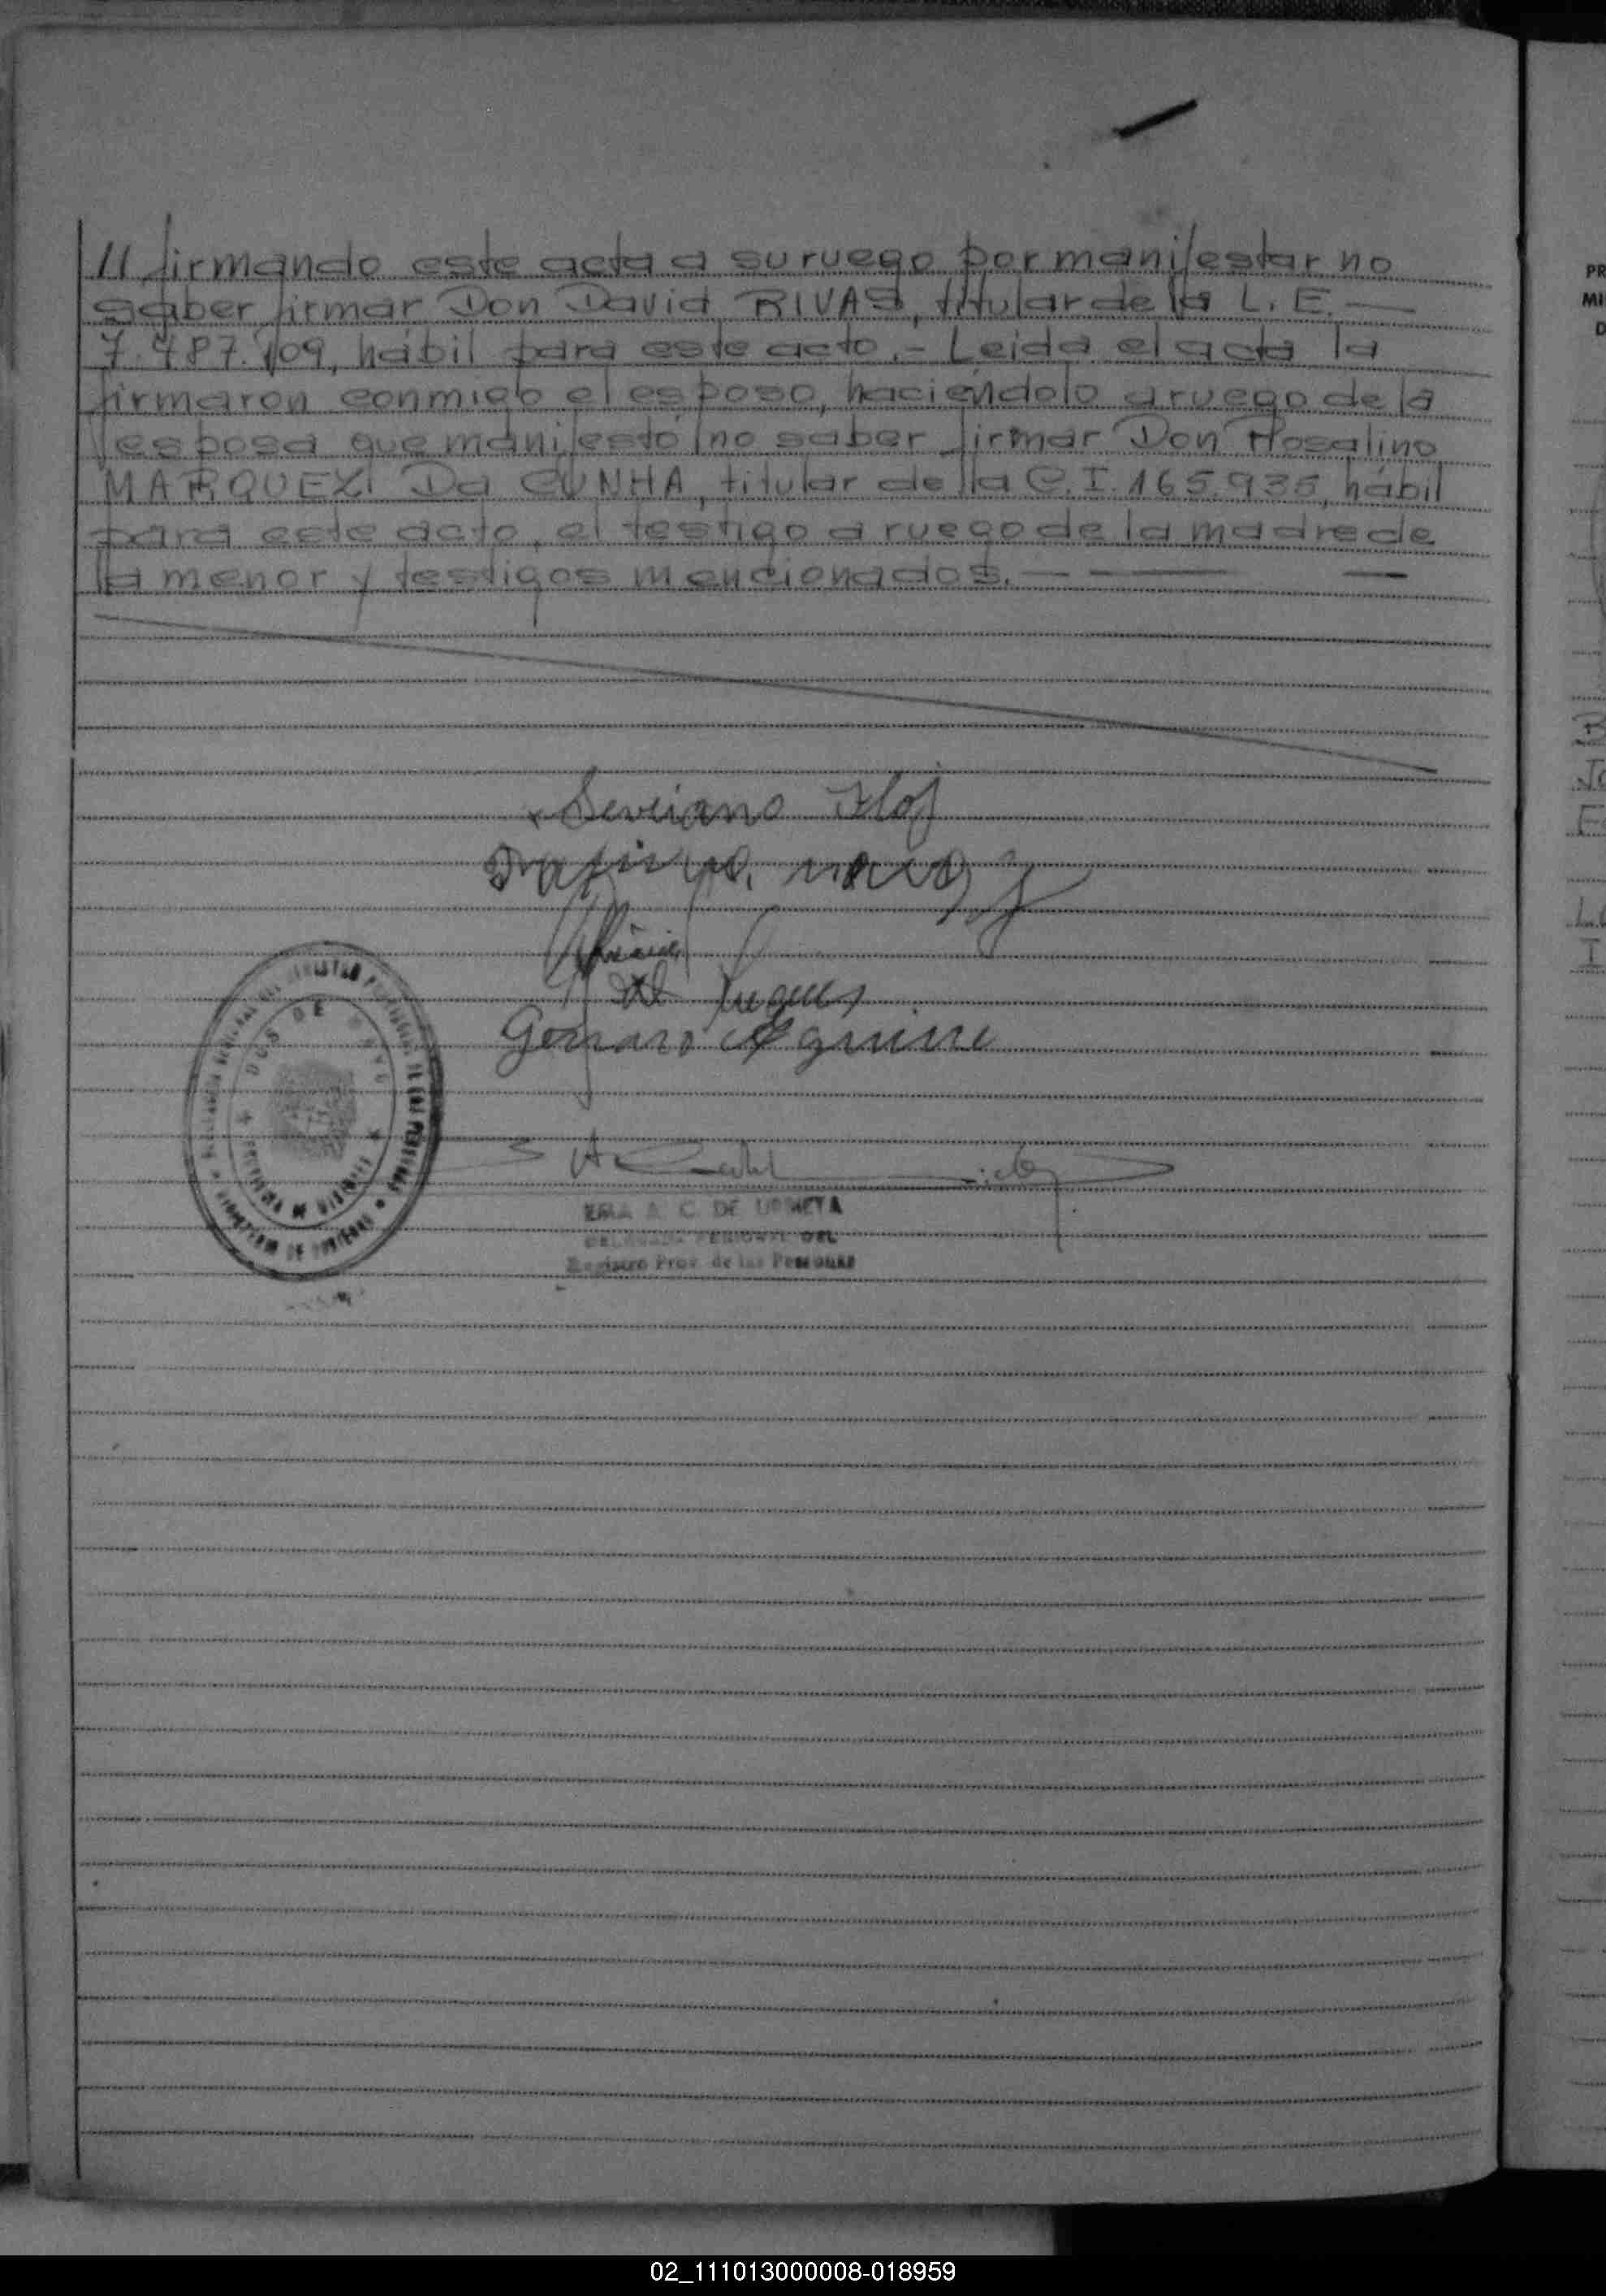 // firmando este acta a su ruego por manifestar no
saber firmar Don David RIVAS, titular de la L. E. —
7.487.109, hábil para este acto.- Leida el acta la
firmaron conmigo el esposo, haciéndolo a ruego de la
esposa que manifestó no saber firmar Don Rosalino
MARQUEZ Da CUNHA, titular de la C.I. 165.935, hábil
para este acto, el testigo a ruego de la madre de
la menor y testigos mencionados. — — —
Severiano
Genaro Aguirre
DOS DE MAYO
PROVINCIA DE MISIONES
C. DE URMETA
DEL
Registro Prov. de las Personas
PR
MI
D
B
Jo
F
L
I
02_111013000008-018959